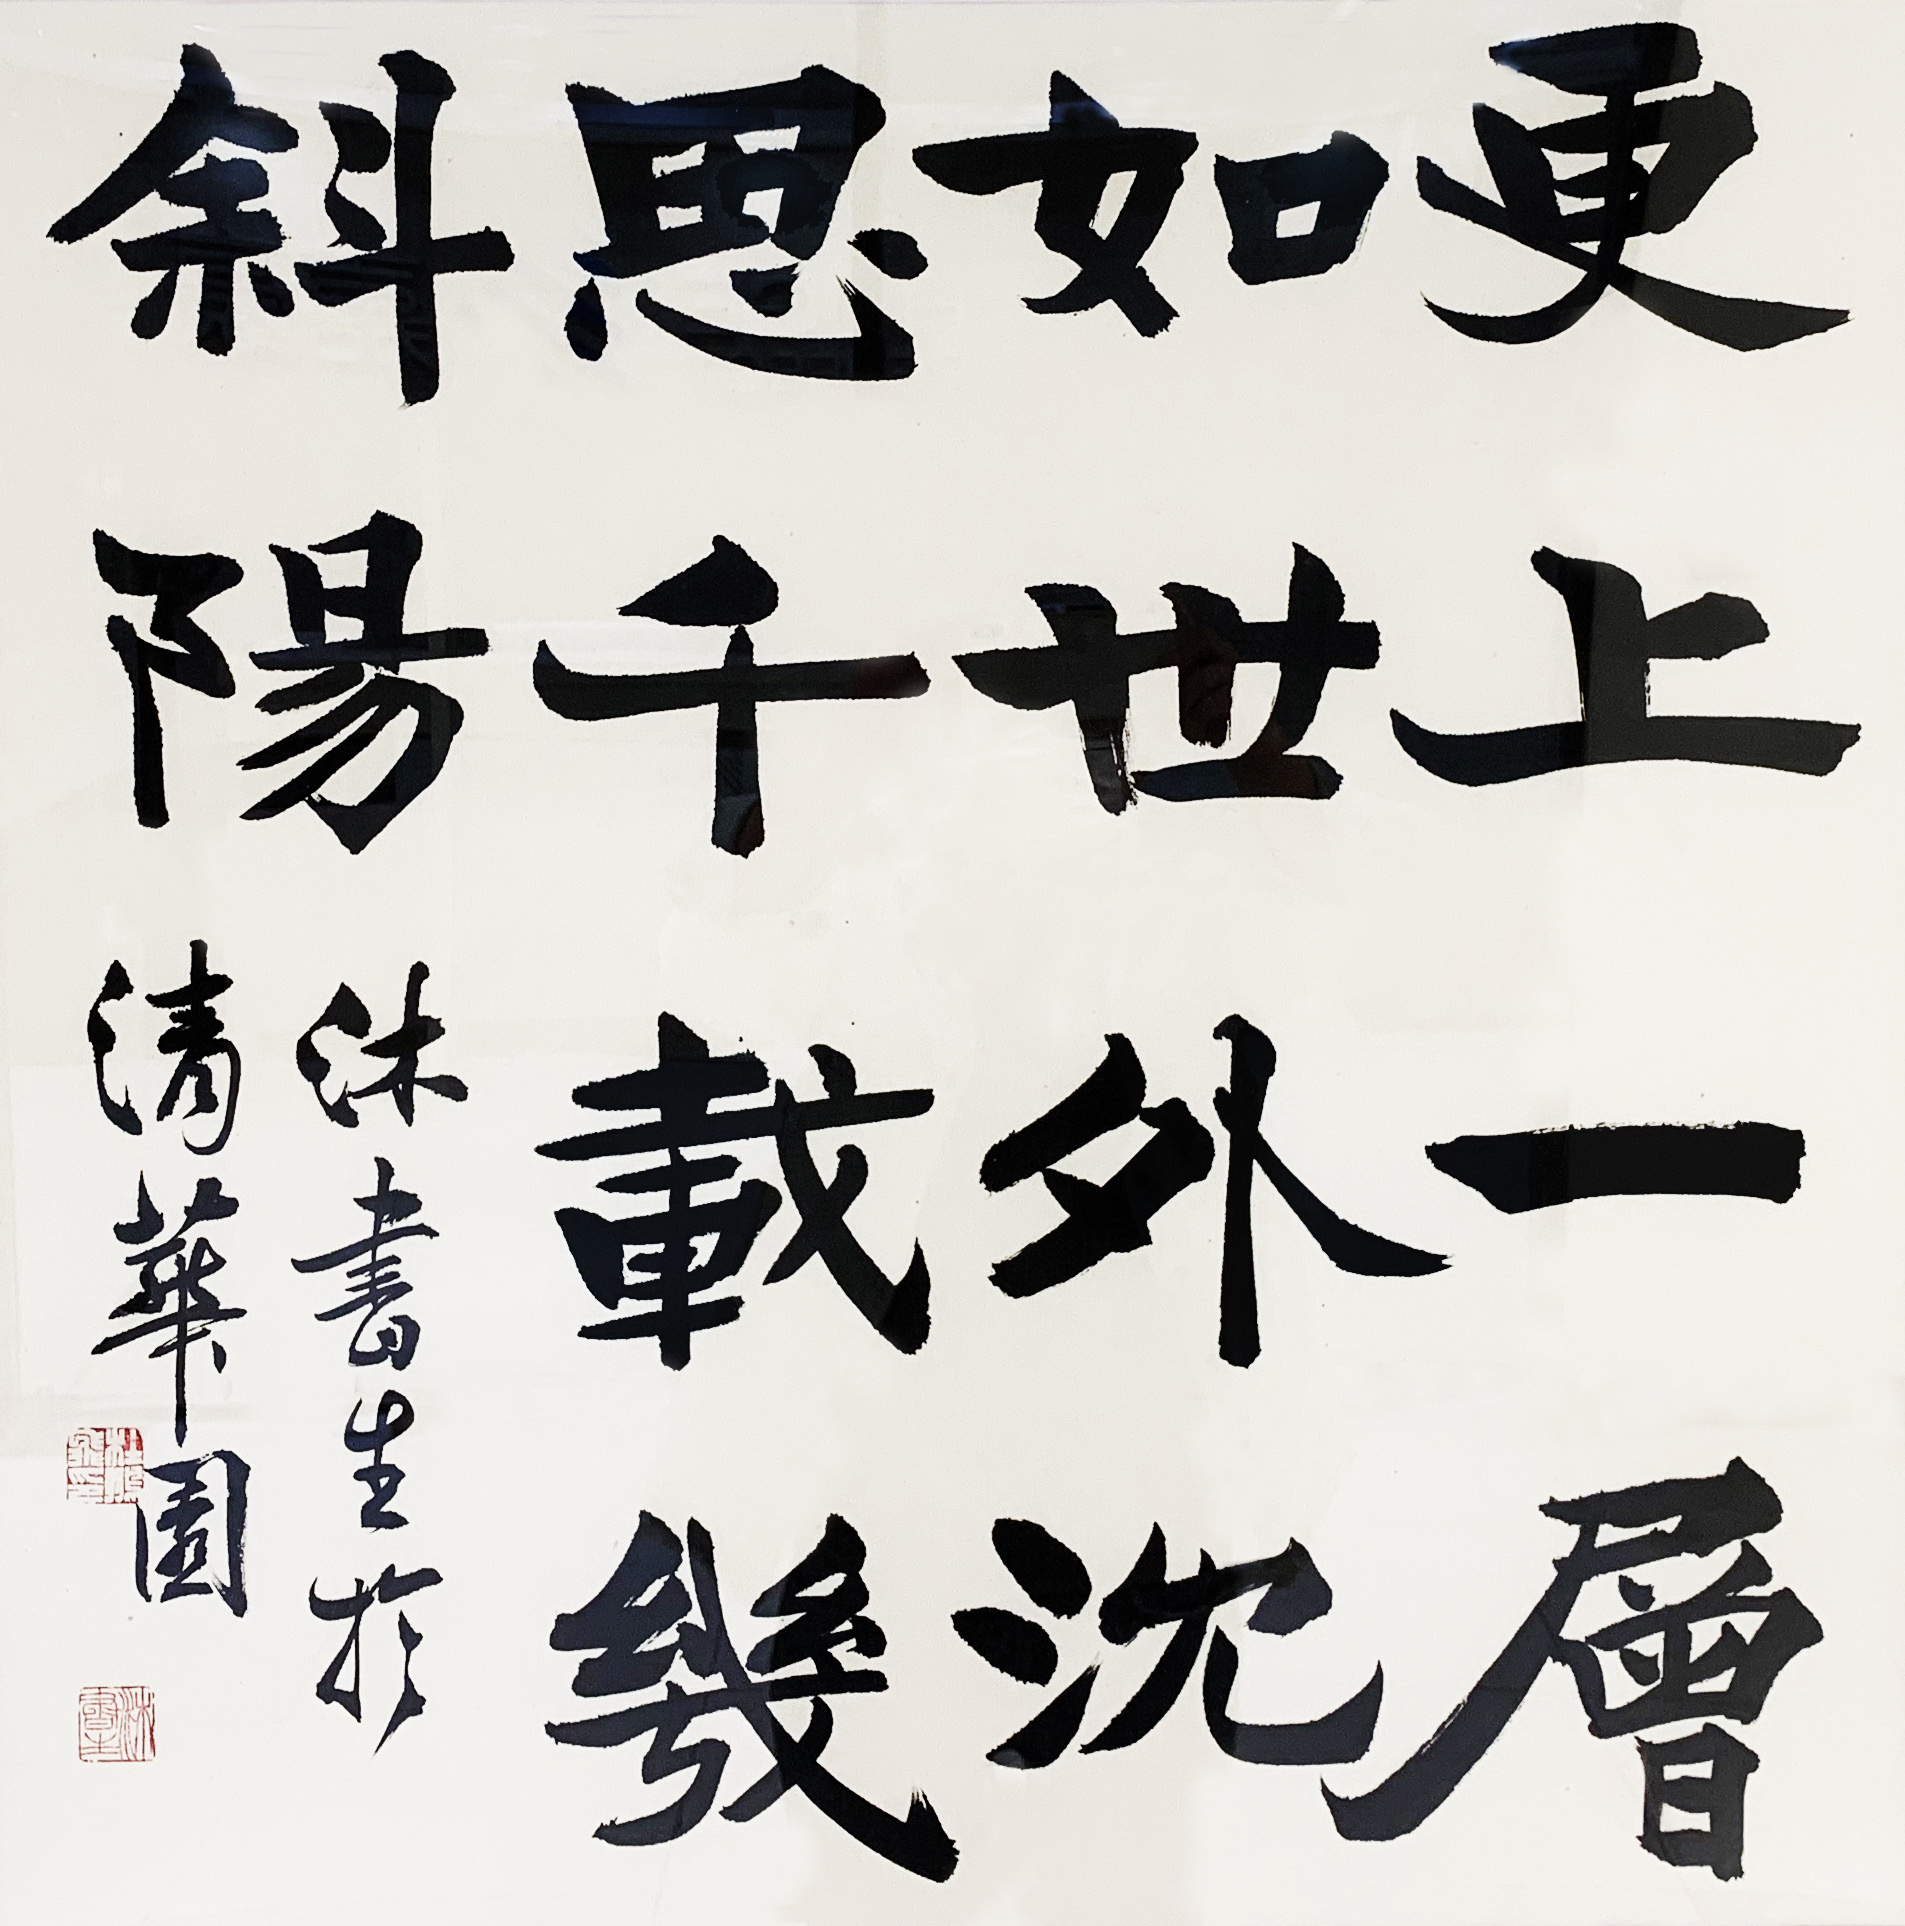 更上一層
如世外沈
思千載幾
斜陽
沐書生於
清華園